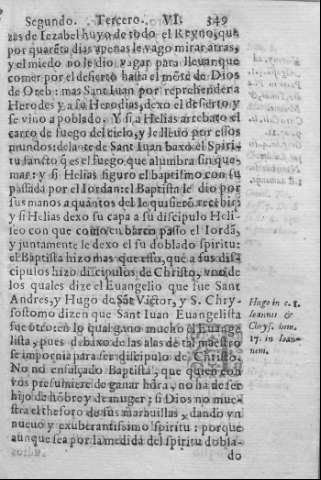 Segundo. Tercero. VI. 349
zas de Iezabel huyo de todo el Reyno, que
por quarẽta dias apenas le vago mirar atras,
y el miedo no le dio vagar para lleuar que
comer por el desierto hasta el mõte de Dios
de Oreb: mas Sant Iuan por reprehender a
Herodes y a su Herodias, dexo el desierto y
se vino a poblado. Y si a Helias arrebato el
carro de fuego del cielo, y le lleuo por essos
mundos: delante de Sant Iuan baxò el Spiri-
tu sancto q̃ es el fuego que alumbra sin que-
mar: y si Helias figuro el baptismo con su
passada por el Iordan: el Baptista le dio por
sus manos a quantos del le quisierõ recebir:
y si Helias dexo su capa a su discipulo Heli-
seo con que como en barco passo el Iordã,
y juntamente le dexo el su doblado spiritu:
el Baptista hizo mas que esso, que a sus dis-
cipulos hizo discipulos de Christo, vno de
los quales dize el Euangelio que fue Sant
Andres, y Hugo de Sãt Victor, y S. Chry-
sostomo dizen que Sant Iuan Euangelista
fue otro: en lo qual gano mucho el Euange-
lista, pues debaxo de las alas de tal maestro
se imponia para ser discipulo de Christo.
No no ensalçado Baptista, que quien con
vos presumiere de ganar hõra, no ha de ser
hijo de hõbre y de muger: si Dios no mue-
stra el thesoro de sus marauillas, dando vn
nueuo y exuberantissimo spiritu: porque
aunque sea por la medida del spiritu dobla-
do
Hugo in c. 1.
Ioannis &
Chrys. tom.
17. in Ioan-
nem.